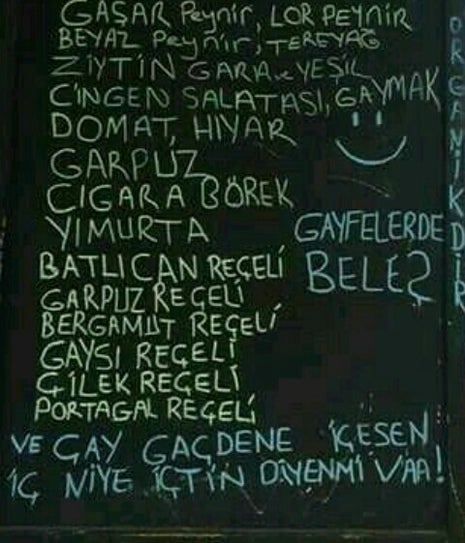 GAŞAR Peynir, LOR PEYNİR
BEYAZ Peynir, TEREYAĞ
ZİYTİN GARA ve YEŞİL
ÇİNGEN SALATASI, GAYMAK
DOMAT, HIYAR
GARPUZ
CIGARA BÖREK
YIMURTA
GAYFELERDE
BELEŞ
BATLICAN REÇELİ
GARPUZ REÇELİ
BERGAMUT REÇELİ
GAYSI REÇELİ
ÇİLEK REÇELİ
PORTAGAL REÇELİ
VE ÇAY GAÇDENE İÇESEN
İÇ NİYE İÇTİN DİYENMİ VAA!
ORGANİKDİR